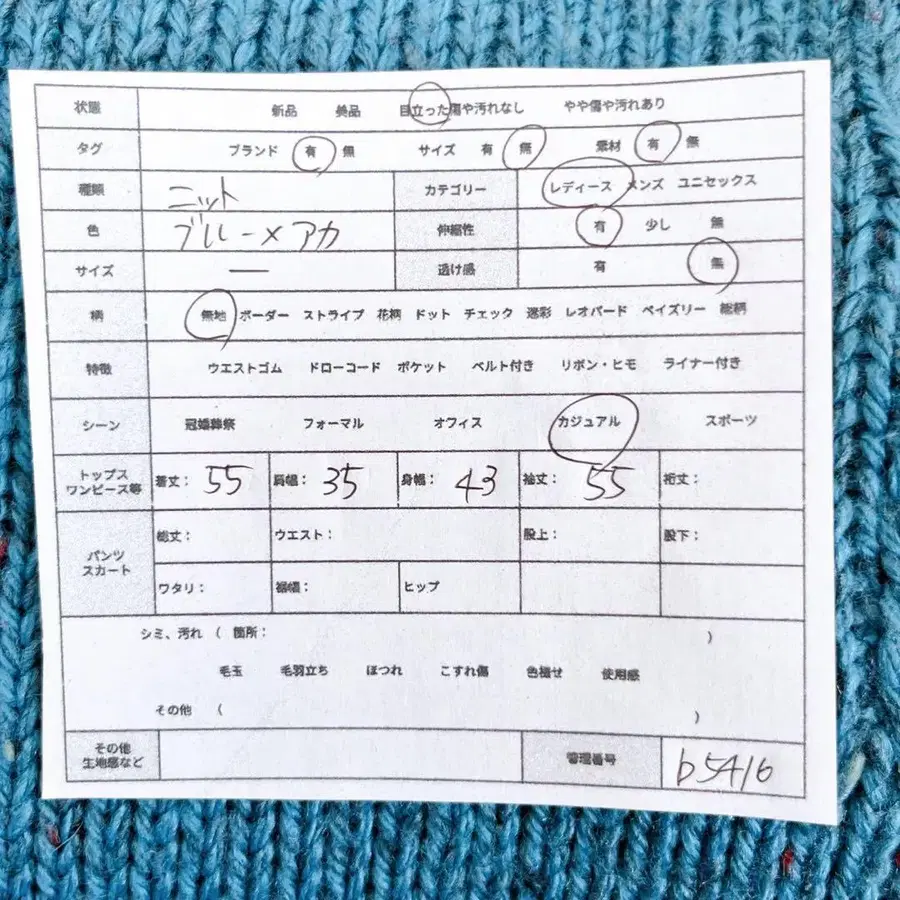 状態 新品 美品 目立った傷や汚れなし やや傷や汚れあり
タグ ブランド 有 無 サイズ 有 無 素材 有 無
種類 ニット カテゴリー レディース メンズ ユニセックス
色 ブルー×アカ 伸縮性 有 少し 無
サイズ ー 透け感 有 無
柄 無地 ボーダー ストライプ 花柄 ドット チェック 迷彩 レオパード ペイズリー 総柄
特徴 ウエストゴム ドローコード ポケット ベルト付き リボン・ヒモ ライナー付き
シーン 冠婚葬祭 フォーマル オフィス カジュアル スポーツ
トップス
ワンピース等 着丈: 55 肩幅: 35 身幅: 43 袖丈: 55 裄丈:
パンツ
スカート 総丈: ウエスト: 股上: 股下:
ワタリ: 裾幅: ヒップ
シミ、汚れ ( 箇所: )
毛玉 毛羽立ち ほつれ こすれ傷 色褪せ 使用感
その他 ( )
その他
生地感など 管理番号 b5416